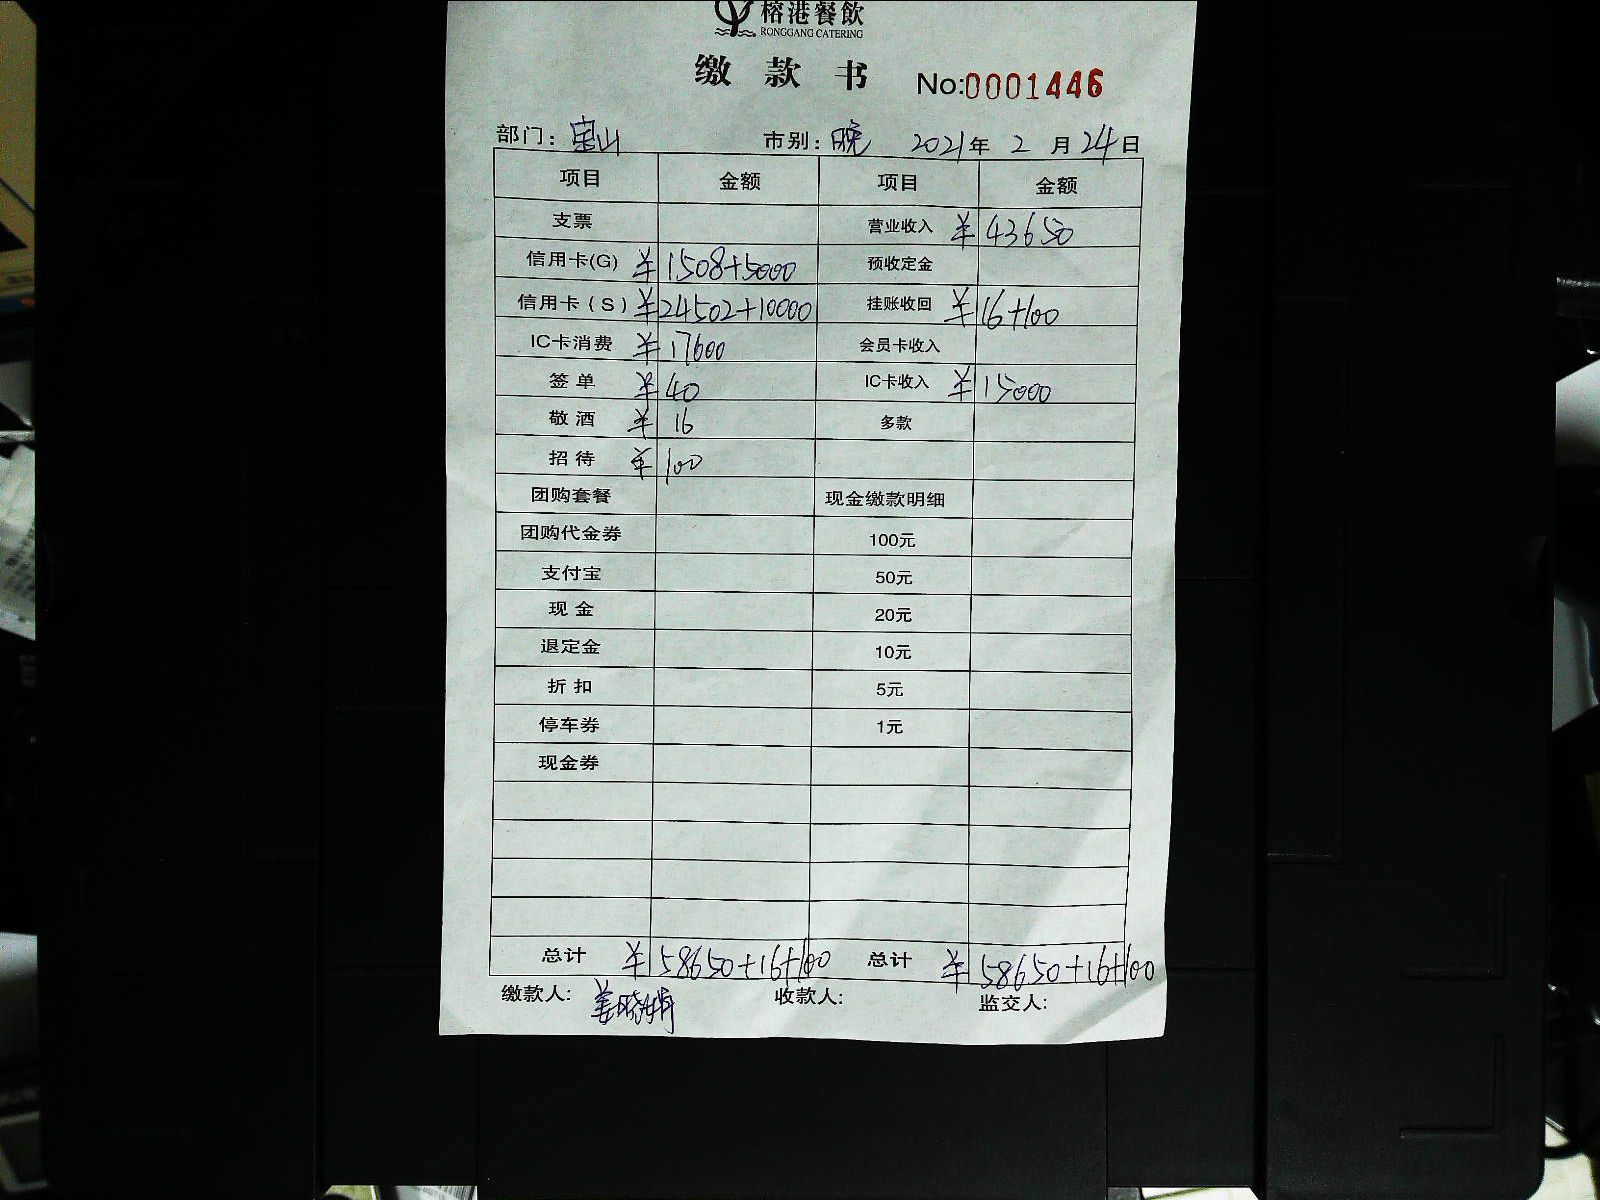 榕港餐飲
RONGGANG CATERING
缴款书 No:0001446
部门：宝山 市别：晚 2021年 2月24日
项目 金额 项目 金额
支票 营业收入 ¥43650
信用卡(G) ¥1508+5000 预收定金
信用卡（S）¥24502+10000 挂账收回 ¥16+100
IC卡消费 ¥17600 会员卡收入
签单 ¥40 IC卡收入 ¥15000
敬酒 ¥16 多款
招待 ¥100
团购套餐 现金缴款明细
团购代金券 100元
支付宝 50元
现金 20元
退定金 10元
折扣 5元
停车券 1元
现金券
总计 ¥58650+16+100 总计 ¥58650+16+100
缴款人：姜晓娟 收款人： 监交人：